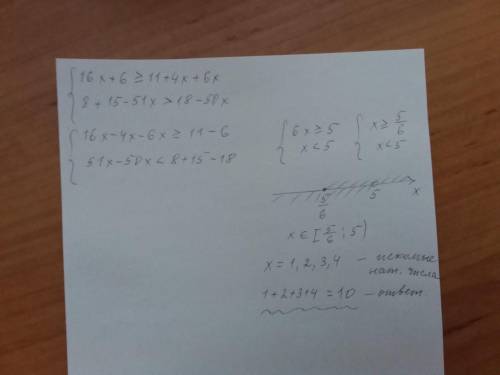 { 16x+6 ≥ 11+4x+6x
8+15-51x > 18-50x
{ 16x-4x-6x ≥ 11-6
51x-50x < 8+15-18
{ 6x ≥ 5
x < 5
{ x ≥ 5/6
x < 5
5/6 5 x
x ∈ [5/6; 5)
x = 1, 2, 3, 4 – искомые
нат. числа
1+2+3+4 = 10 – ответ.